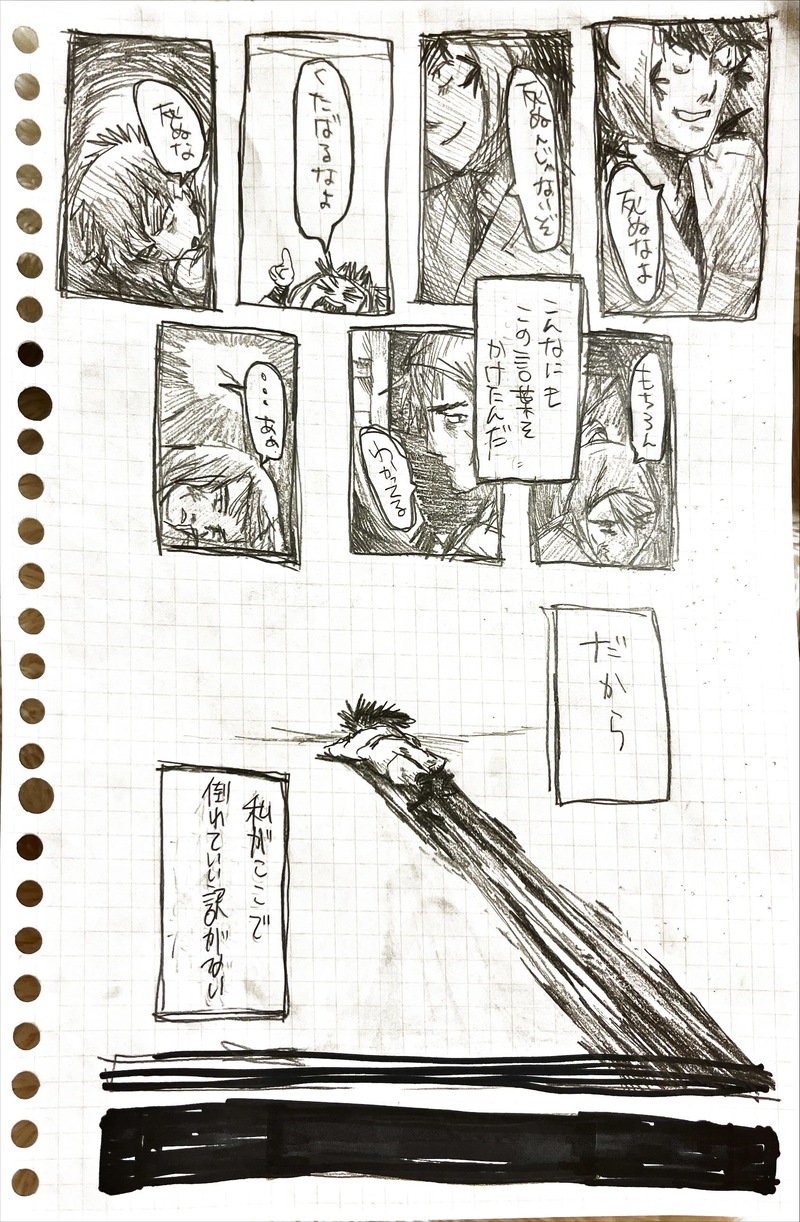 死ぬなよ
死ぬんじゃないぞ
くたばるなよ
死ぬな
こんなにも
この言葉を
かけたんだ
もちろん
わかってる
・・・あぁ
だから
私がここで
倒れていい訳がない